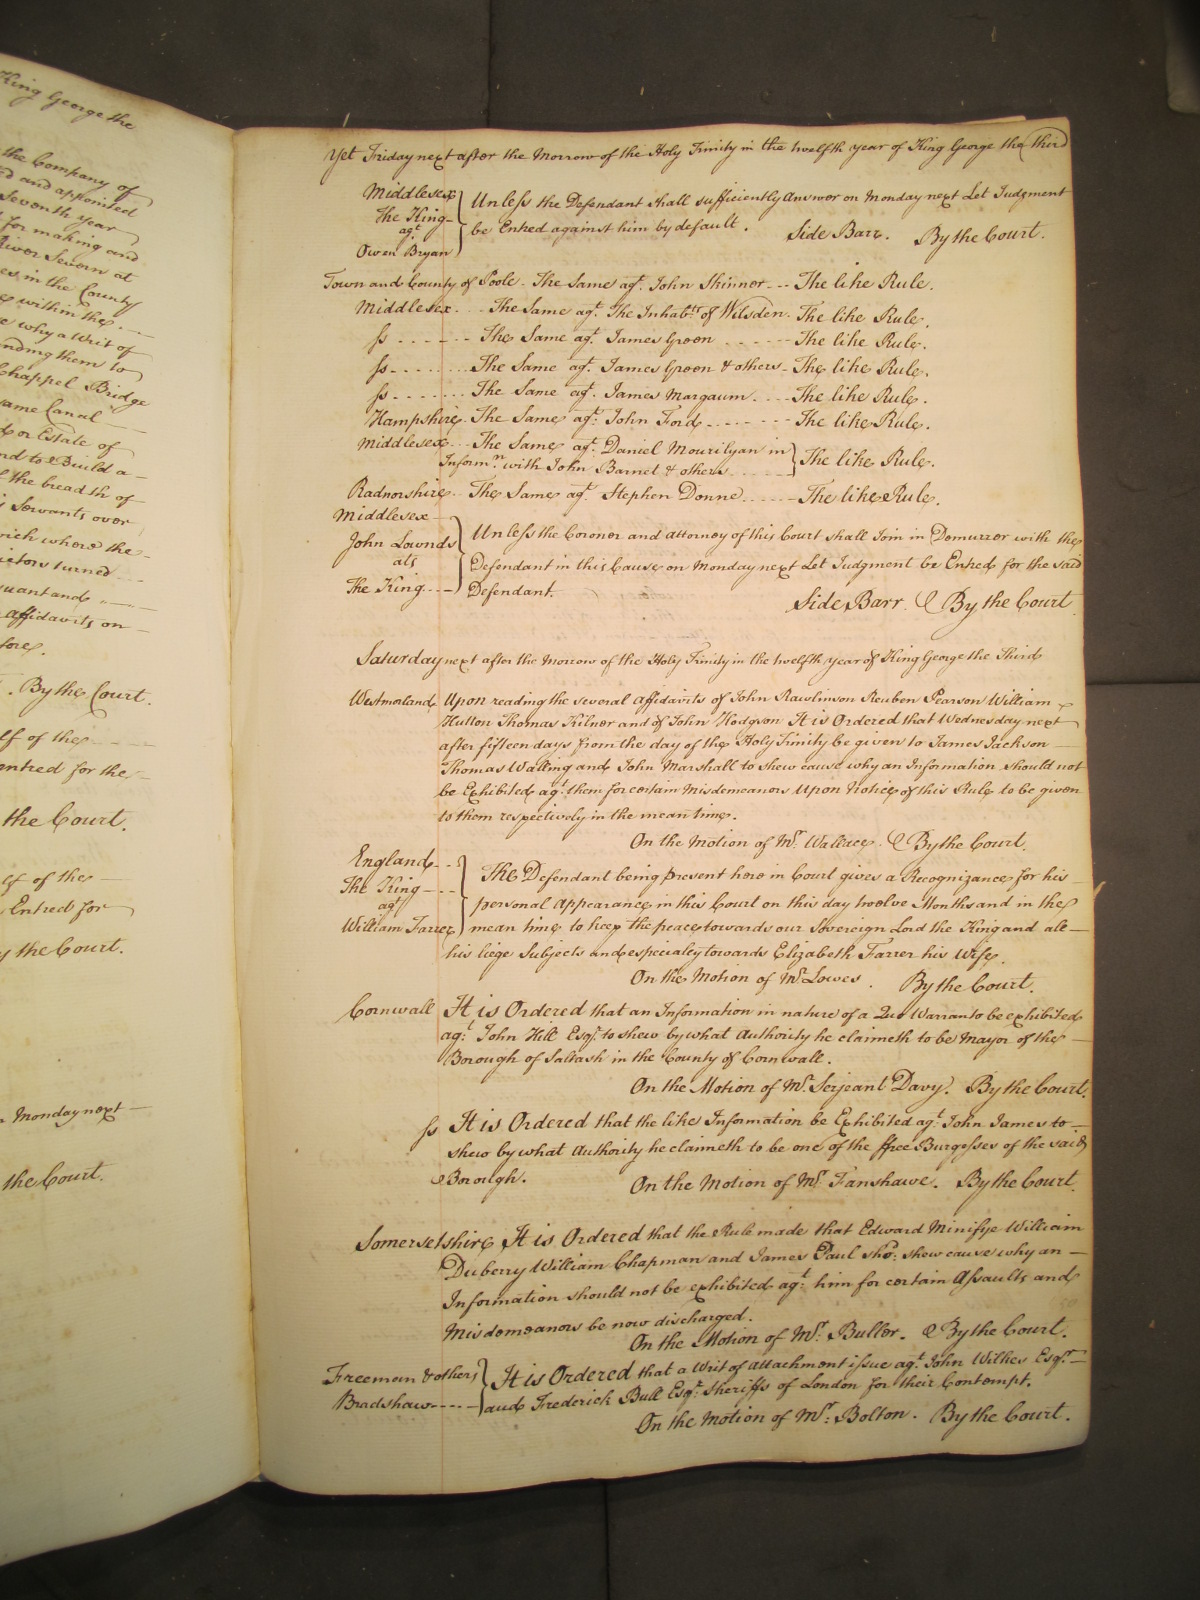 King George the
the Company of
and appointed
Seventh year
for making and
River Severn at
in the County
within the
why a Writ of
them to
Chappel Bridge
same Canal
or Estate of
and to Build a
the breadth of
Servants over
which where the
turned
and
affidavits on
By the Court.
lf of the
Entred for the
the Court.
lf of the
Entred for
the Court.
Monday next
the Court.
Yet Friday next after the Morrow of the Holy Trinity in the twelfth year of King George the third
Middlesex
The King
agt
Owen Bryan
Unless the Defendant shall sufficiently answer on Monday next Let Judgment
be Entred against him by default. Side Barr. By the Court.
Town and County of Poole - The Same agt. John Skinner - - - The like Rule.
Middlesex - - The Same agt. The Inhabts. of Wilsden - The like Rule.
ss - - - - - - The Same agt. James Green - - - - - - The like Rule.
ss - - - - - - The Same agt. James Green & others - The like Rule.
ss - - - - - - The Same agt. James Margaum - - - - The like Rule.
Hampshire - The Same agt. John Ford - - - - - - The like Rule.
Middlesex - - The Same agt. Daniel Mourilyan in
Informn. with John Barnet & others - - - - The like Rule.
Radnorshire - The Same agt. Stephen Donne - - - - - The like Rule.
Middlesex
John Lownds
ats
The King
Unless the Coroner and Attorney of this Court shall Join in Demurrer with the
Defendant in this Cause on Monday next Let Judgment be Entred for the said
Defendant.
Side Barr. By the Court
Saturday next after the Morrow of the Holy Trinity in the twelfth year of King George the Third
Westmorland Upon reading the several Affidavits of John Rawlinson Reuben Pearson William
Hutton Thomas Kilner and of John Hodgson It is Ordered that Wednesday next
after fifteen days from the day of the Holy Trinity be given to James Jackson
Thomas Walling and John Marshall to shew cause why an Information should not
be Exhibited agt. them for certain Misdemeanors Upon Notice of this Rule to be given
to them respectively in the mean time.
On the Motion of Mr. Wallace. By the Court.
England
The King
agt
William Farrer
The Defendant being present here in Court gives a Recognizance for his
personal Appearance in this Court on this day twelve Months and in the
mean time to keep the peace towards our Sovereign Lord the King and all
his liege Subjects and especialy towards Elizabeth Farrer his Wife.
On the Motion of Mr. Lowes. By the Court.
Cornwall It is Ordered that an Information in nature of a Quo Warranto be exhibited
agt. John Hill Esqr. to shew by what Authority he claimeth to be Mayor of the
Borough of Saltash in the County of Cornwall.
On the Motion of Mr. Serjeant Davy. By the Court.
ss It is Ordered that the like Information be Exhibited agt. John James to
shew by what Authority he claimeth to be one of the ffree Burgesses of the said
Borough. On the Motion of Mr. Fanshawe. By the Court.
Somersetshire It is Ordered that the Rule made that Edward Minifye William
Duberry William Chapman and James Paul sho: shew cause why an
Information should not be exhibited agt. him for certain Assaults and
Misdemeanors be now discharged.
On the Motion of Mr. Buller. By the Court.
Freeman & others
Bradshaw
It is Ordered that a Writ of attachment issue agt. John Wilkes Esqr.
and Frederick Bull Esqr. Sheriffs of London for their Contempt.
On the Motion of Mr. Bolton. By the Court.